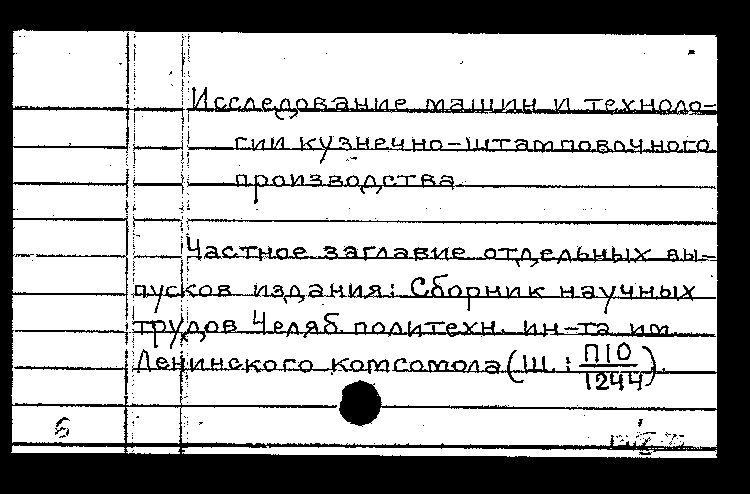 Исследование машин и техноло-
гии кузнечно-штамповочного
производства
Частное заглавие отдельных вы-
пусков издания: Сборник научных
трудов Челяб. политехн. ин-та им.
Ленинского комсомола (Ш.: П10
1244).
б